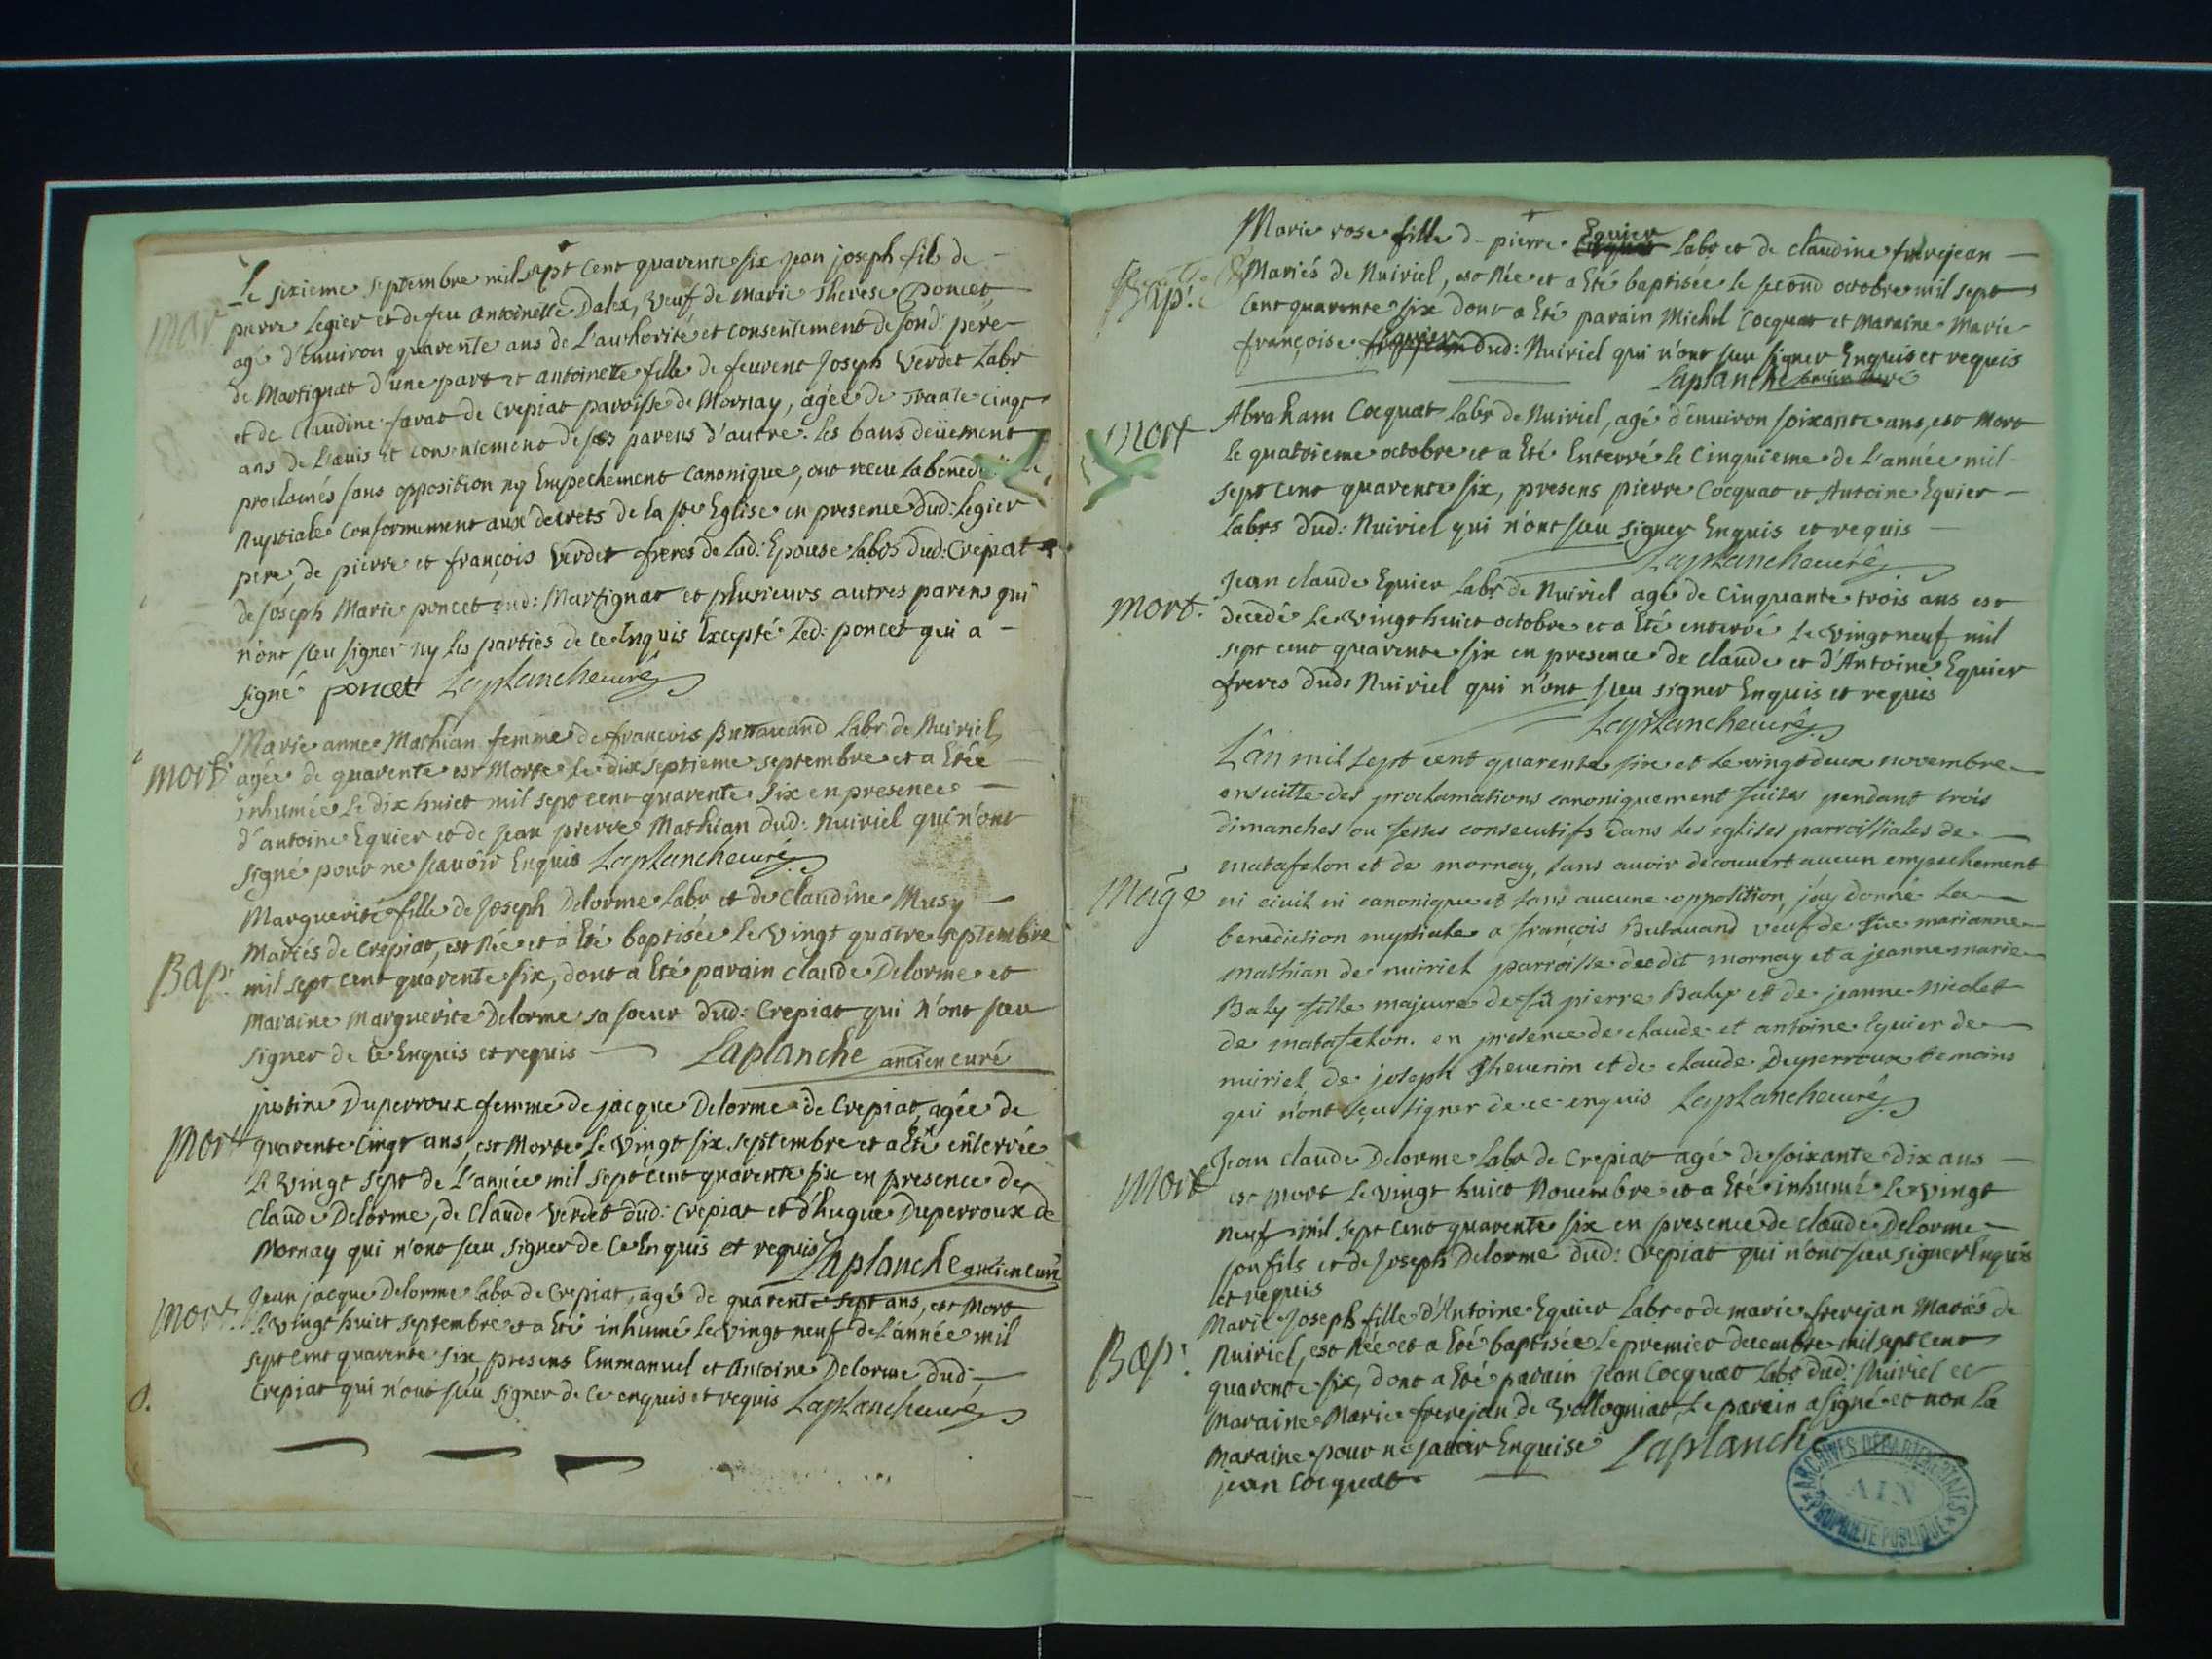 Mar
Le sixieme septembre mil sept cent quarente six jean joseph fils de
pierre Legier et de feu Antoinette Dalex, veuf de Marie Therese Poncet,
agé d'Environ quarente ans de L'authorité et consentement de sond: pere
de Martignat d'une part et antoinette fille de feuvent Joseph Verdet Labr
et de Claudine favat de Crepiat paroisse de Mornay, agée de Trante cinqt
ans de L'auis et consentement de ses parens d'autre. Les bans deüement
proclamés sans opposition ny Empechement canonique, ont receu la
nuptiale conformement aux decrets de la ste Eglise en presence dud: Legier
pere, de pierre et françois Verdet freres de lad: Epouse Labrs dud: Crepiat
de Joseph Marie poncet dud: Martignat et plusieurs autres parens qui
n'ont sceu signer ny les parties de ce Enquis Excepté Led: poncet qui a
signé poncet Laplanche curé
mort
Marie anne Mathian femme de françois Butauand Labr de Nuiriel
agée de quarente est Morte le dix septieme septembre et a Etée
inhumée le dix huict mil sept cent quarente six en presence
d'antoine Equier et de Jean pierre Mathian dud: Nuiriel qui n'ont
signé pour ne sçauoir Enquis Laplanche curé
Bap:
Marguerite fille de Joseph Delorme Labr et de Claudine Musy
Mariés de Crepiat, est Née et a Eté baptisée le Vingt quatre septembre
mil sept cent quarente six, dont a Eté parain Claude Delorme et
maraine Marguerite Delorme sa soeur dud: Crepiat qui n'ont sceu
signer de ce Enquis et requis Laplanche ancien curé
Mort
justine Duperroux femme de jacque Delorme de Crepiat, agée de
quarente Cinqt ans, est Morte le Vingt six septembre et a Eté enterrée
le Vingt sept de l'année mil sept cent quarente six en presence de
Claude Delorme, de Claude Verdet dud: Crepiat et d'hugue Duperroux de
Mornay qui n'ont sceu signer de Ce Enquis et requis Laplanche ancien curé
Mort.
Jean jacque Delorme labr de Crepiat, agé de quarente sept ans, est Mort
le Vingt huict septembre et a Eté inhumé le Vingt neuf de l'année mil
sept cent quarente six presens Emmanuel et Antoine Delorme dud:
Crepiat qui n'ont sceu signer de Ce enquis et requis Laplanche curé
Bap:
Marie rose fille d pierre Equier Labr et de claudine frerejean
Mariés de Nuiriel, est Née et a Eté baptisée le second octobre mil sept
Cent quarente six dont a Eté parain Michel Cocquat et Maraine Marie
françoise Equier dud: Nuiriel qui n'ont sceu signer Enquis et requis
Laplanche
mort
Abraham Cocquat labr de Nuiriel, agé d'enuiron soixante ans, est Mort
le quatrieme octobre et a Eté Enterré le Cinquieme de L'année mil
sept cent quarente six, presens pierre Cocquat et Antoine Equier
Labrs Dud: Nuiriel qui n'ont sceu signer Enquis et requis
Laplanche curé
mort.
Jean claude Equier Labr de Nuiriel agé de Cinquante trois ans est
decedé le Vingt huict octobre et a Eté enterré le Vingt neuf mil
sept cent quarente six en presence de Claude et d'Antoine Equier
freres dud: Nuiriel qui n'ont sceu signer Enquis et requis
Laplanche curé
Mage
L'an mil sept cent quarente six et le vingt deux novembre
ensuitte des proclamations canoniquement faites pendant trois
dimanches ou festes consecutifs dans les eglises parroissiales de
matafelon et de mornay, sans auoir decouuert aucun empechement
ni ciuil ni canonique et sans aucune opposition, j'ay donné La
benediction nuptiale a françois Butauand veuf de fue marianne
mathian de nuiriel parroisse dudit mornay et a jeanne marie
Baly fille majeure de fû pierre Baly et de jeanne nicolet
de matafelon. en presence de claude et antoine Equier de
nuiriel, de joseph Theuenin et de claude Duperroux temoins
qui n'ont sçeu signer de ce enquis Laplanche curé
Mort
Jean claude Delorme Labr de Crepiat agé de soixante dix ans
est mort le vingt huict Nouembre et a Eté inhumé le vingt
neuf mil sept cent quarente six en presence de claude Delorme
son fils et de Joseph Delorme dud: Crepiat qui n'ont sceu signer Enquis
et requis
Bap:
Marie Joseph fille d'Antoine Equier Labr et de marie frerejan Mariés de
Nuiriel, est Née et a Eté baptisée le premier decembre mil sept cent
quarente six, dont a Eté parain Jean Cocquat labr dud: Nuiriel et
Maraine Marie frerejan de Vollogniat, Le parain a signé et non la
maraine pour ne sauoir Enquise Laplanche
jean cocquat
ARCHIVES DÉPARTEMENTALES
AIN
PROPRIÉTÉ PUBLIQUE